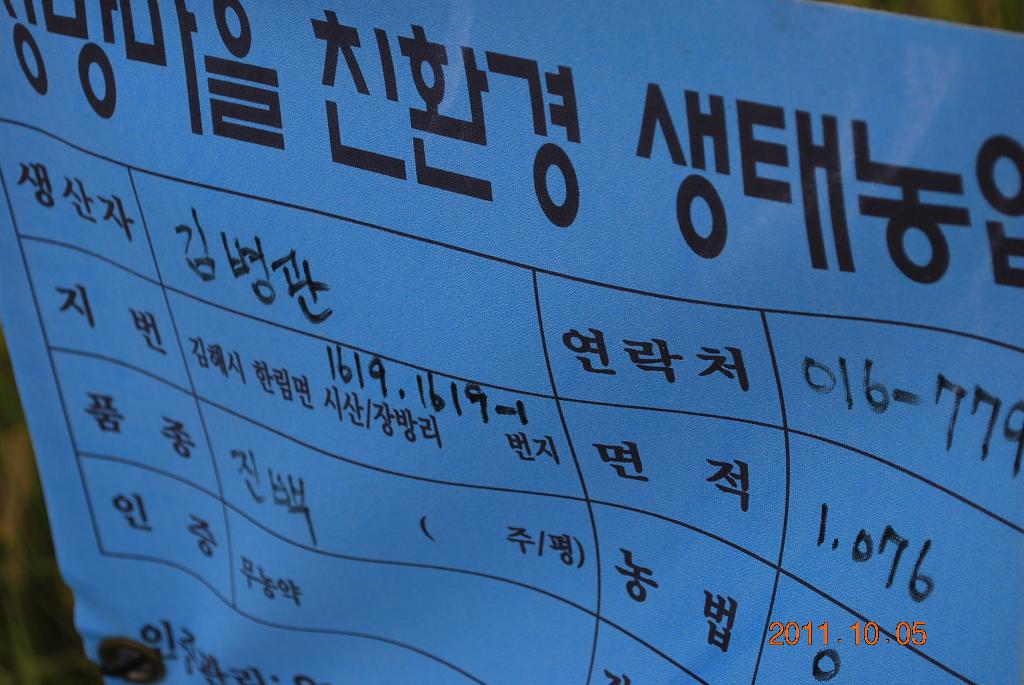 마을 친환경 생태농업
생산자 김병관 연락처 016-779
지번 김해시 한림면 시산/장방리 1619.1619-1 번지 면적 1.076
품종 진백 ( 주/평) 농법
인증 무농약
2011.10.05